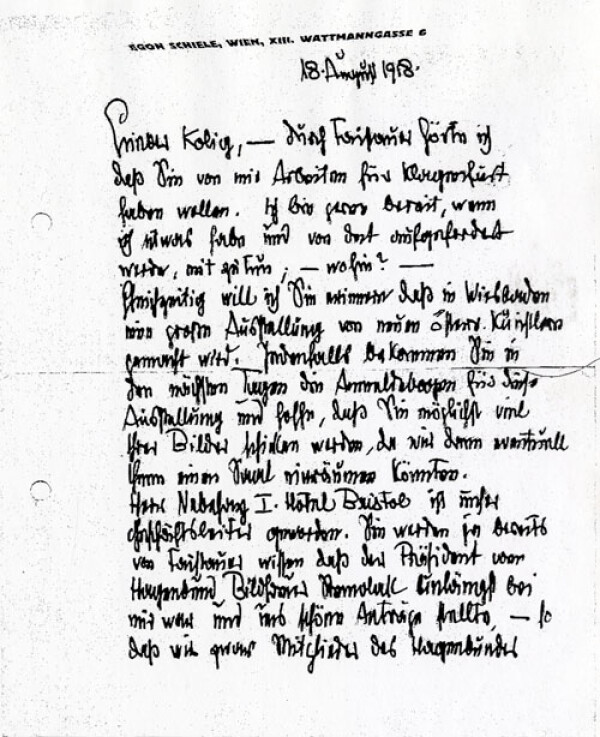 EGON SCHIELE, WIEN, XIII. WATTMANNGASSE 6
18. August 1918.
Lieber Kolig, — durch Faistauer hörte ich
daß Sie von mir Arbeiten für Klagenfurt
haben wollen. Ich bin gerne bereit, wenn
ich etwas habe und von dort aufgefordert
werde, mit zu tun, — wohin? —
Gleichzeitig will ich Sie erinnern daß in Wiesbaden
eine große Ausstellung von neuen österr. Künstlern
gemacht wird. Jedenfalls bekommen Sie in
den nächsten Tagen den Anmeldebogen für diese
Ausstellung und hoffe, daß Sie möglichst viel
Ihrer Bilder schicken werden, da wir dann eventuell
Ihnen einen Saal einräumen könnten.
Herr Nebehay I. Hotel Bristol ist unser
Geschäftsleiter geworden. Sie werden ja bereits
von Faistauer wissen daß der Präsident vom
Hagenbund, Bildhauer Stemolak unlängst bei
mir war und uns schöne Anträge stellte, — so
daß wir zwar Mitglieder des Hagenbundes